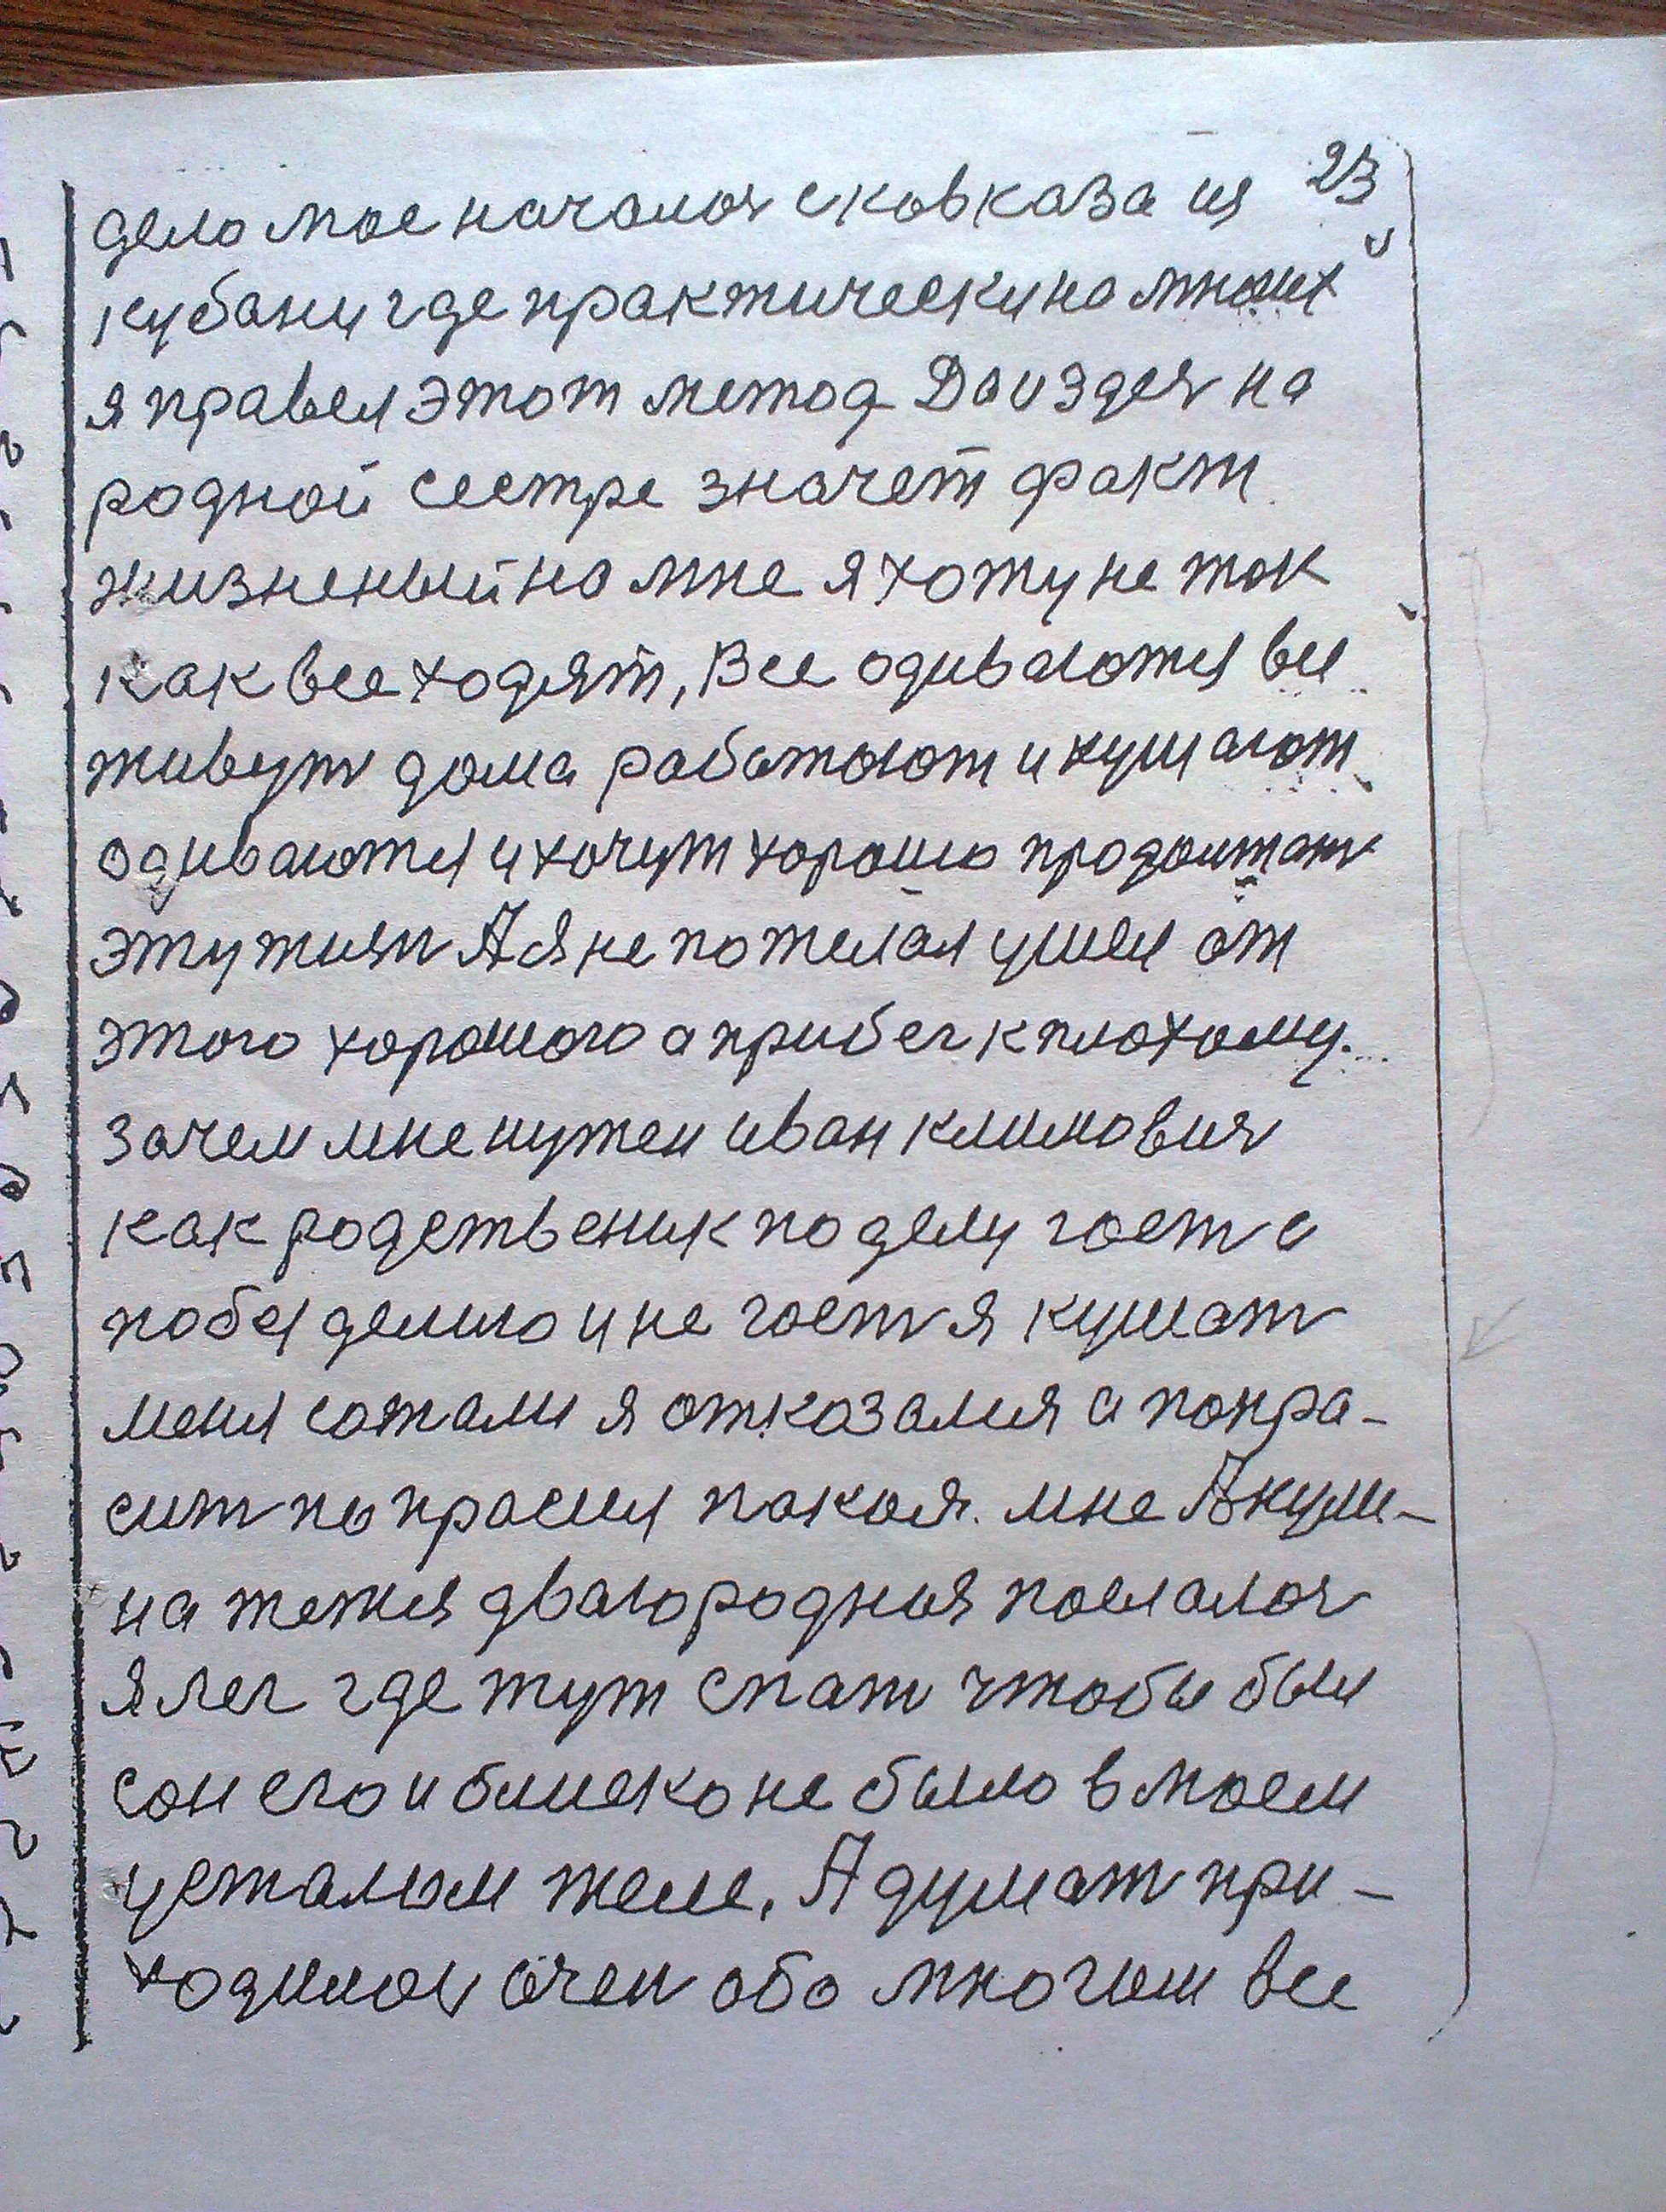 23
дело мое началося с ковказа ис
кубани где практически на многих
я правел этот метод Да и здеся на
родной сестре значет факт
жизненый на мне я хожу не так
как все ходят, Все одиваются все
живут дома работают и кушают
одиваются и хочут хорошо продолжат
эту жизн А я не пожелал ушел от
этого хорошого а прибег к плохому.
зачем мне нужен иван климович
как родственик по делу гост а
побеседемо и не гост я кушат
меня сожали я отказался а попра-
сит попрасил покоя. мне Акули-
на тетя дваюродная послалася
я лег где тут спат чтобы был
сон его и блиско не было в моем
усталым теле. А думат при-
ходилос очен обо многим все